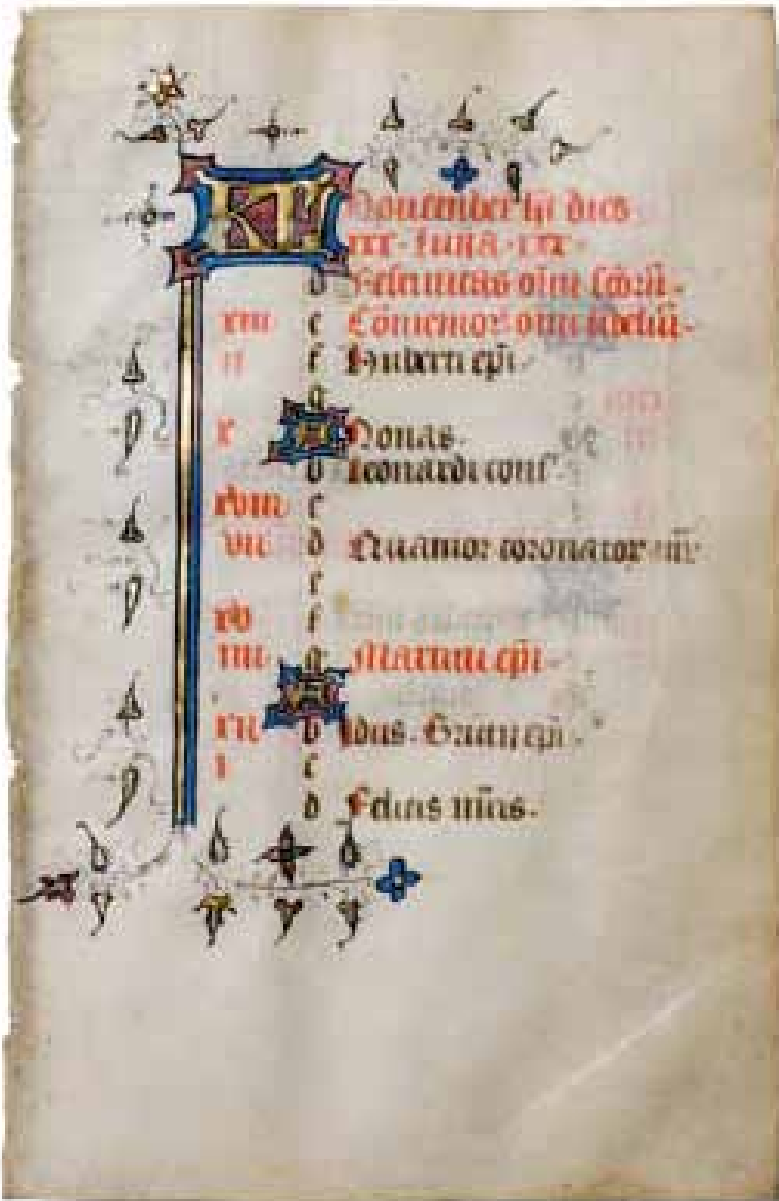 KL November hꝫ dies
xxx · luna · xxx ·
d Festiuitas om̄ scōrū ·
xiii e Cōmemor̄ om̄ fideliū ·
ii f Huberti ep̄i ·
g
x A Nonas ·
b Leonardi conf̄ ·
xviii c
vii d Quatuor coronator m̄r
e
xv f
iiii g Martini ep̄i ·
A
xii b Idus · Bricii ep̄i ·
i c
d Felicis m̄ris ·